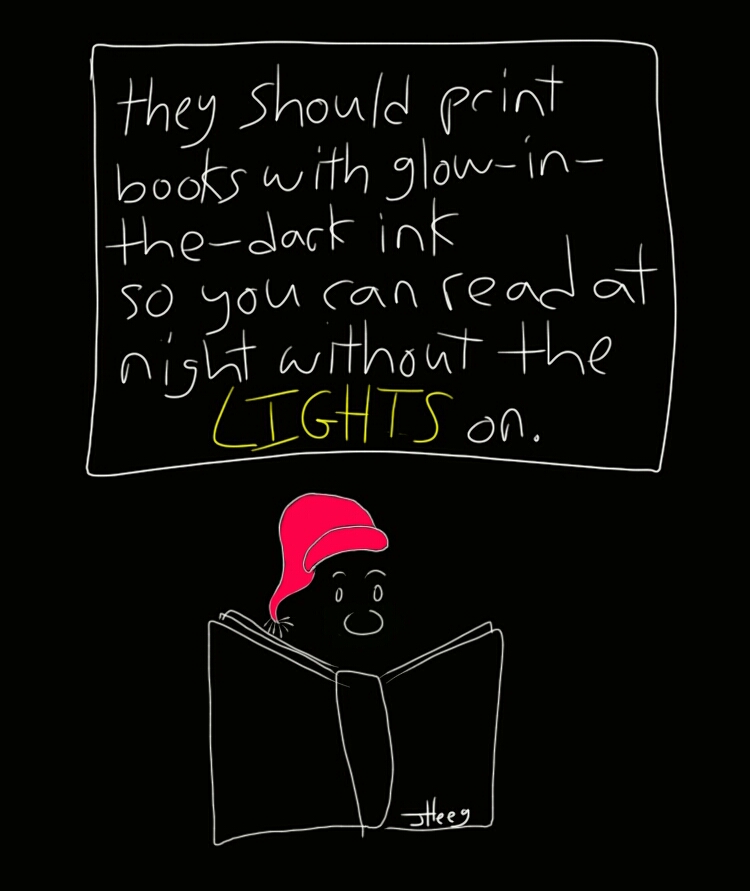 they should print
books with glow-in-
the-dark ink
so you can read at
night without the
LIGHTS on.
JHeeg